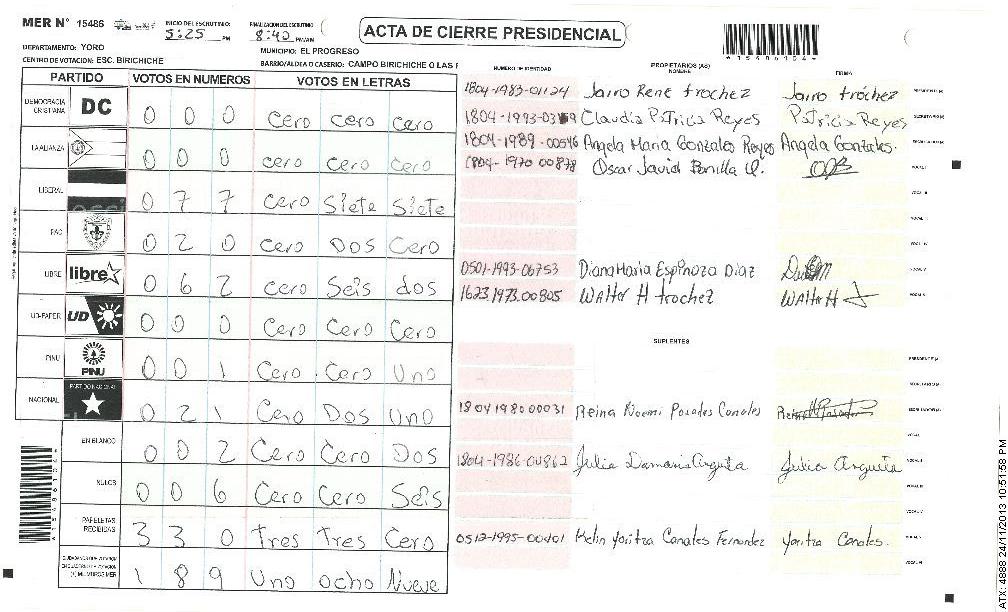 MER N° 15486
INICIO DEL ESCRUTINIO
5:25 PM
FINALIZACION DEL ESCRUTINIO
8:42 PM/AM
ACTA DE CIERRE PRESIDENCIAL
DEPARTAMENTO: YORO
MUNICIPIO: EL PROGRESO
CENTRO DE VOTACION: ESC. BIRICHICHE
BARRIO/ALDEA O CASERIO: CAMPO BIRICHICHE O LAS F
PARTIDO VOTOS EN NUMEROS VOTOS EN LETRAS
DEMOCRACIA CRISTIANA DC 0 0 0 Cero cero cero
LA ALIANZA 0 0 0 cero cero cero
LIBERAL 0 7 7 cero Siete Siete
PAC 0 2 0 cero Dos Cero
LIBRE libre 0 6 2 cero Seis dos
UD-FAPER UD 0 0 0 Cero Cero Cero
PINU PINU 0 0 1 Cero Cero Uno
NACIONAL PARTIDO NACIONAL 0 2 1 Cero Dos Uno
EN BLANCO 0 0 2 Cero Cero Dos
NULOS 0 0 6 Cero Cero Seis
PAPELETAS RECIBIDAS 3 3 0 Tres Tres Cero
(+) MIEMBROS MER 1 8 9 Uno ocho Nueve
NUMERO DE IDENTIDAD
PROPIETARIOS (AS)
NOMBRE
FIRMA
1804-1983-01124 Jairo Rene trochez Jairo tróchez PRESIDENTE (A)
Claudia Patricia Reyes Patricia Reyes SECRETARIO (A)
1804-1989-00546 Angela Maria Gonzales Reyes Angela Gonzales. ESCRUTADOR (A)
1804-1970 00878 Oscar Javier Bonilla O. VOCAL I
VOCAL II
VOCAL III
VOCAL IV
0501-1993-06753 Diana Maria Espinoza Diaz VOCAL V
1623 1973.00805 Walter H trochez Walter H
SUPLENTES
PRESIDENTE (A)
SECRETARIO (A)
1804 1980 00031 Reina Noemi Posadas Canales ESCRUTADOR (A)
VOCAL I
1804-1986-00862 Julia Damaris Argueta Julia Argueta
0512-1995-00101 Kelin Yoritza Canales Fernandez Yoritza Canales.
ATX: 4888 24/11/2013 10:51:58 PM